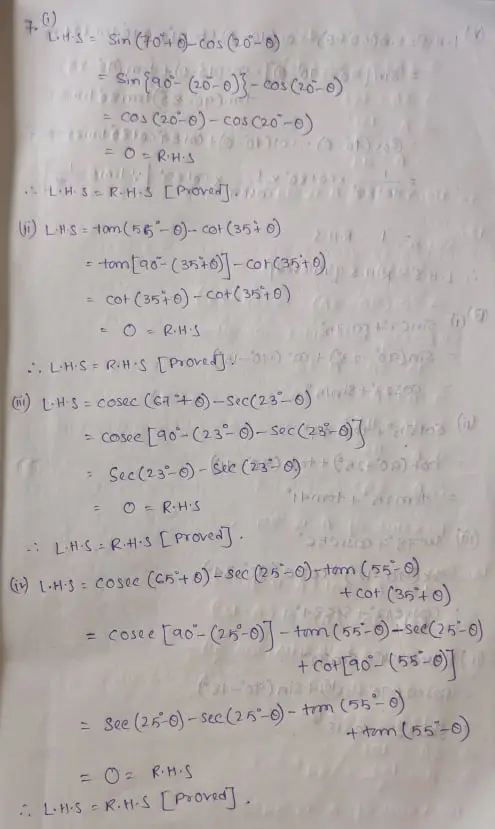 7. (i)
L.H.S = sin(70°+θ)-cos(20°-θ)
= sin{90°-(20°-θ)}-cos(20°-θ)
= cos(20°-θ)-cos(20°-θ)
= 0 = R.H.S
∴ L.H.S = R.H.S [Proved].
(ii) L.H.S = tan(55°-θ)-cot(35°+θ)
= tan[90°-(35°+θ)]-cot(35°+θ)
= cot(35°+θ)-cot(35°+θ)
= 0 = R.H.S
∴ L.H.S = R.H.S [Proved].
(iii) L.H.S = cosec(67°+θ)-sec(23°-θ)
= cosec[90°-(23°-θ)-sec(23°-θ)}
= sec(23°-θ)-sec(23°-θ)
= 0 = R.H.S
∴ L.H.S = R.H.S [Proved].
(iv) L.H.S = cosec(65°+θ)-sec(25°-θ)-tan(55°-θ)
+cot(35°+θ)
= cosec[90°-(25°-θ)]-tan(55°-θ)-sec(25°-θ)
+cot[90°-(55°-θ)]
= sec(25°-θ)-sec(25°-θ)-tan(55°-θ)
+tan(55°-θ)
= 0 = R.H.S
∴ L.H.S = R.H.S [Proved].